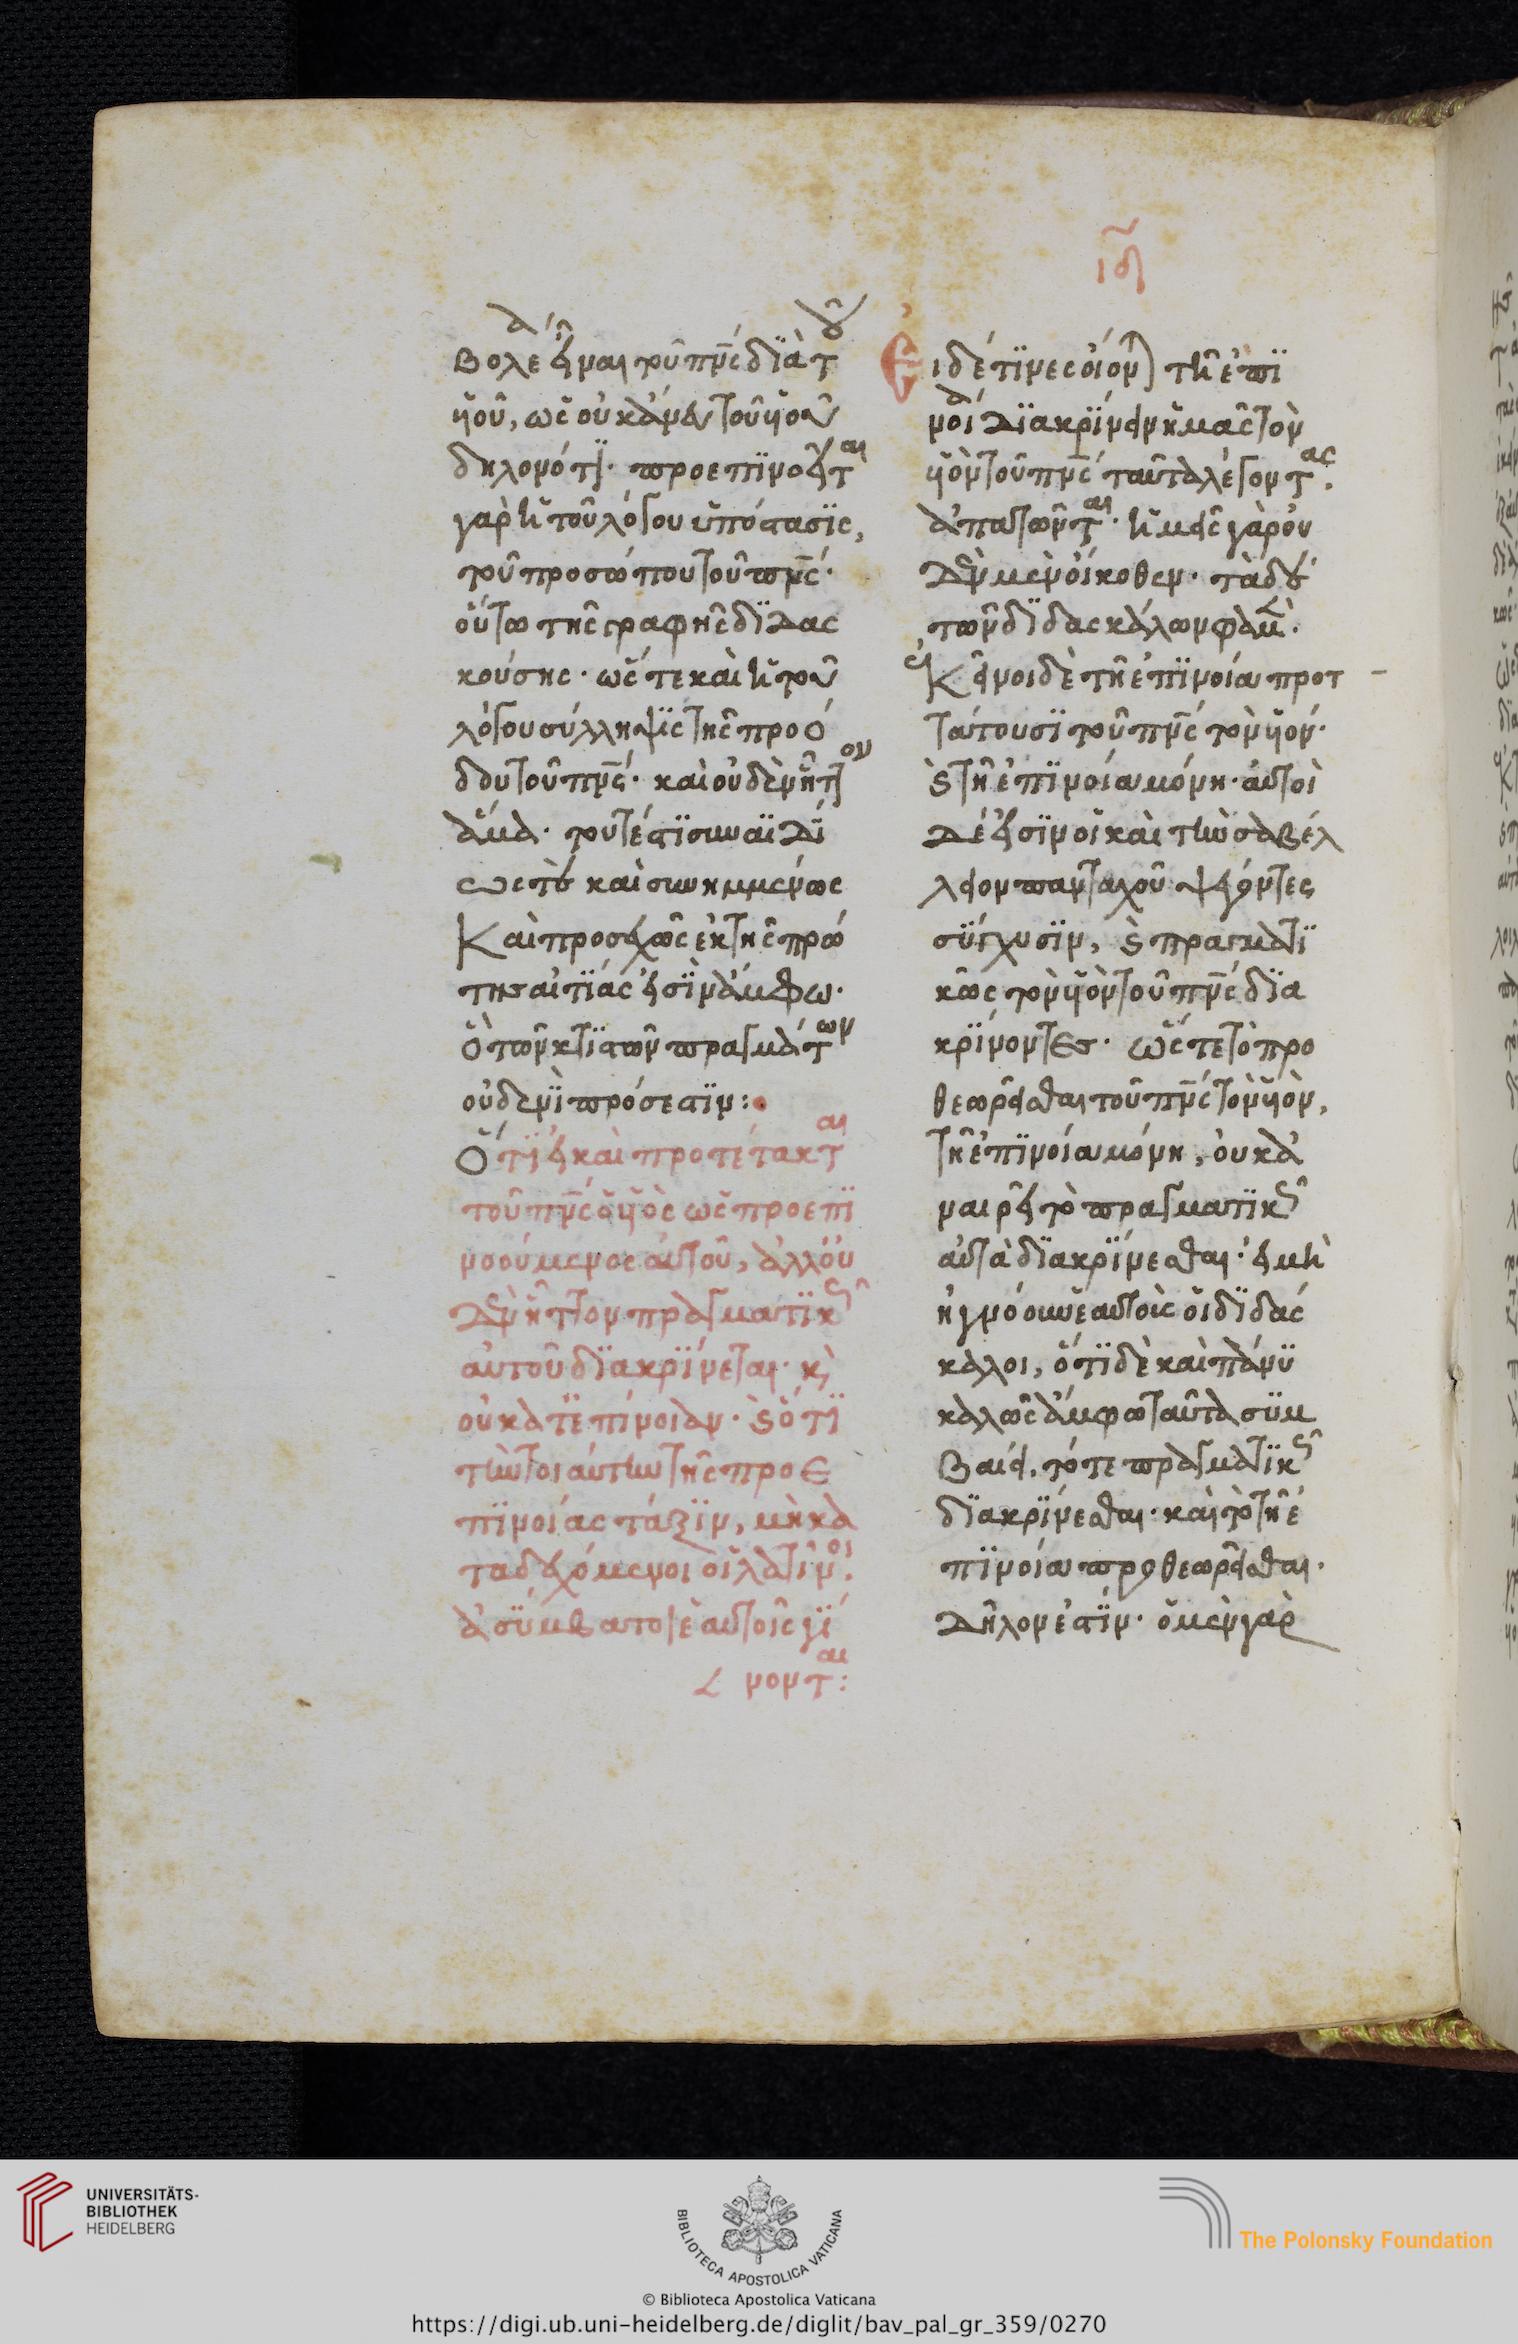 ιδ
βολέα εἶναι τοῦ πρς διὰ τοῦ
υἱοῦ, ὡς οὐκ ἄνευ τοῦ υἱοῦ
δηλονότι. προεπινοεῖται
γὰρ ἡ τοῦ λόγου ὑπόστασις,
τοῦ προσώπου τοῦ πνς.
οὕτω τῆς γραφῆς διδας
κούσης. ὥς τε καὶ ἡ τοῦ
λόγου σύλληψις τῆς προό
δου τοῦ πνς. καὶ οὐδὲν ἧττον
ἅμα. τουτέστι συναϊδί
ως τὲ καὶ συνημμένως
Καὶ προσεχῶς ἐκ τῆς πρώ
της αἰτίας εἰσὶν ἄμφω.
ὃ τῶν κτιστῶν πραγμάτων
οὐδενὶ πρόσεστιν:
Ὅτι εἰ καὶ προτέτακται
τοῦ πνς ὁ υἱὸς ὡς προεπι
νοούμενος αὐτοῦ, ἀλλ' οὐ
δὲν ἧττον πραγματικῶς
αὐτοῦ διακρίνεται. κὶ
οὐ κατ' ἐπίνοιαν. καὶ ὅτι
τὴν τοιαύτην τῆς προε
πινοίας τάξιν, μὴ κα
ταδεχόμενοι οἱ λατῖνοι.
ἀσύμβατοι ἑαυτοῖς γί
νονται:
Εἰ δέ τινες οἴονται τῇ ἐπι
νοίᾳ διακρίνειν ἡμᾶς τὸν
υἱὸν τοῦ πνς ταῦτα λέγοντας.
ἀπατῶνται. ἡμεῖς γὰρ οὐ
δὲν μὲν οἴκοθεν. τὰ δὲ
τῶν διδασκάλων φαμὲν.
ἐκεῖνοι δὲ τῇ ἐπινοίᾳ προτ
ταύτουσι τοῦ πνς τὸν υἱόν.
καὶ τῇ ἐπινοίᾳ μόνῃ. αὐτοὶ
δέ εἰσιν οἱ καὶ τὴν σαβελ
λείον πανταχοῦ φεύγοντες
σύγχυσιν, καὶ πραγματι
κῶς τὸν υἱὸν τοῦ πνς δια
κρίνοντες. ὥς τε τὸ προ
θεωρεῖσθαι τοῦ πνς τὸν υἱὸν,
τῇ ἐπινοίᾳ μόνῃ, οὐκ ἀ
ναιρεῖ τὸ πραγματικῶς
αὐτὰ διακρίνεσθαι. εἰ μὴ
ἠγνόουν ἑαυτοὺς οἱ διδάσ
καλοι, ὅτι δὲ καὶ πάνυ
καλῶς ἄμφω ταῦτα συμ
βαίνει. τό τε πραγματικῶς
διακρίνεσθαι. καὶ τὸ τῇ ἐ
πινοίᾳ προθεωρεῖσθαι.
δῆλον ἐστίν. ὁ μὲν γὰρ
UNIVERSITÄTS-
BIBLIOTHEK
HEIDELBERG
BIBLIOTECA APOSTOLICA VATICANA
The Polonsky Foundation
© Biblioteca Apostolica Vaticana
https://digi.ub.uni-heidelberg.de/diglit/bav_pal_gr_359/0270